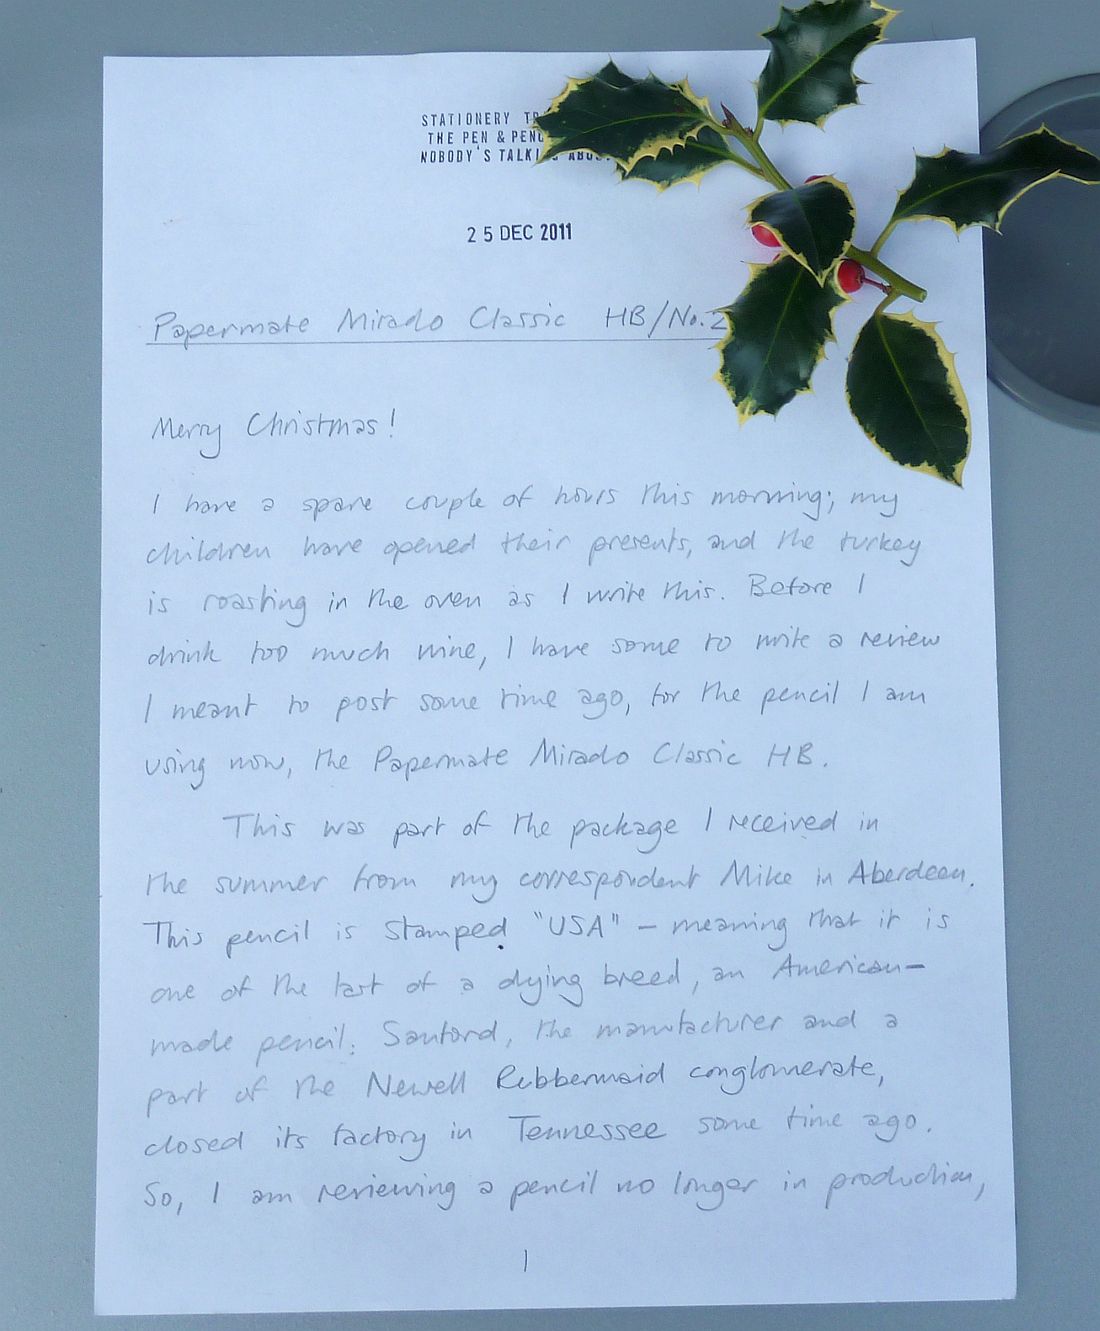 STATIONERY TR
THE PEN & PENC
NOBODY'S TALKI ABOU
25 DEC 2011
Papermate Mirado Classic HB/No.2
Merry Christmas!
I have a spare couple of hours this morning; my
children have opened their presents, and the turkey
is roasting in the oven as I write this. Before I
drink too much wine, I have some to write a review
I meant to post some time ago, for the pencil I am
using now, the Papermate Mirado Classic HB.
This was part of the package I received in
the summer from my correspondent Mike in Aberdeen.
This pencil is stamped "USA" – meaning that it is
one of the last of a dying breed, an American-
made pencil. Sanford, the manufacturer and a
part of the Newell Rubbermaid conglomerate,
closed its factory in Tennessee some time ago.
So, I am reviewing a pencil no longer in production,
1